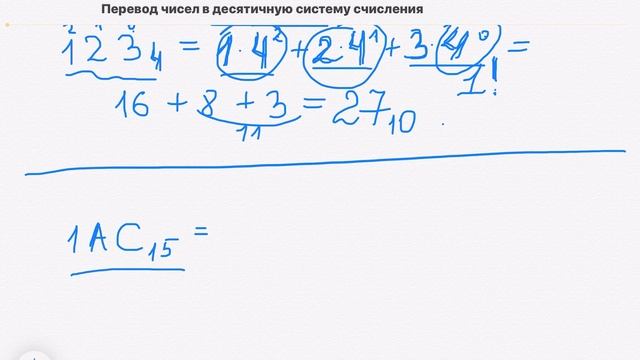 Перевод чисел в десятичную систему счисления
2 1 0
123₄ = 1·4² + 2·4¹ + 3·4⁰ =
1!
16 + 8 + 3 = 27₁₀
11
1AC₁₅ =